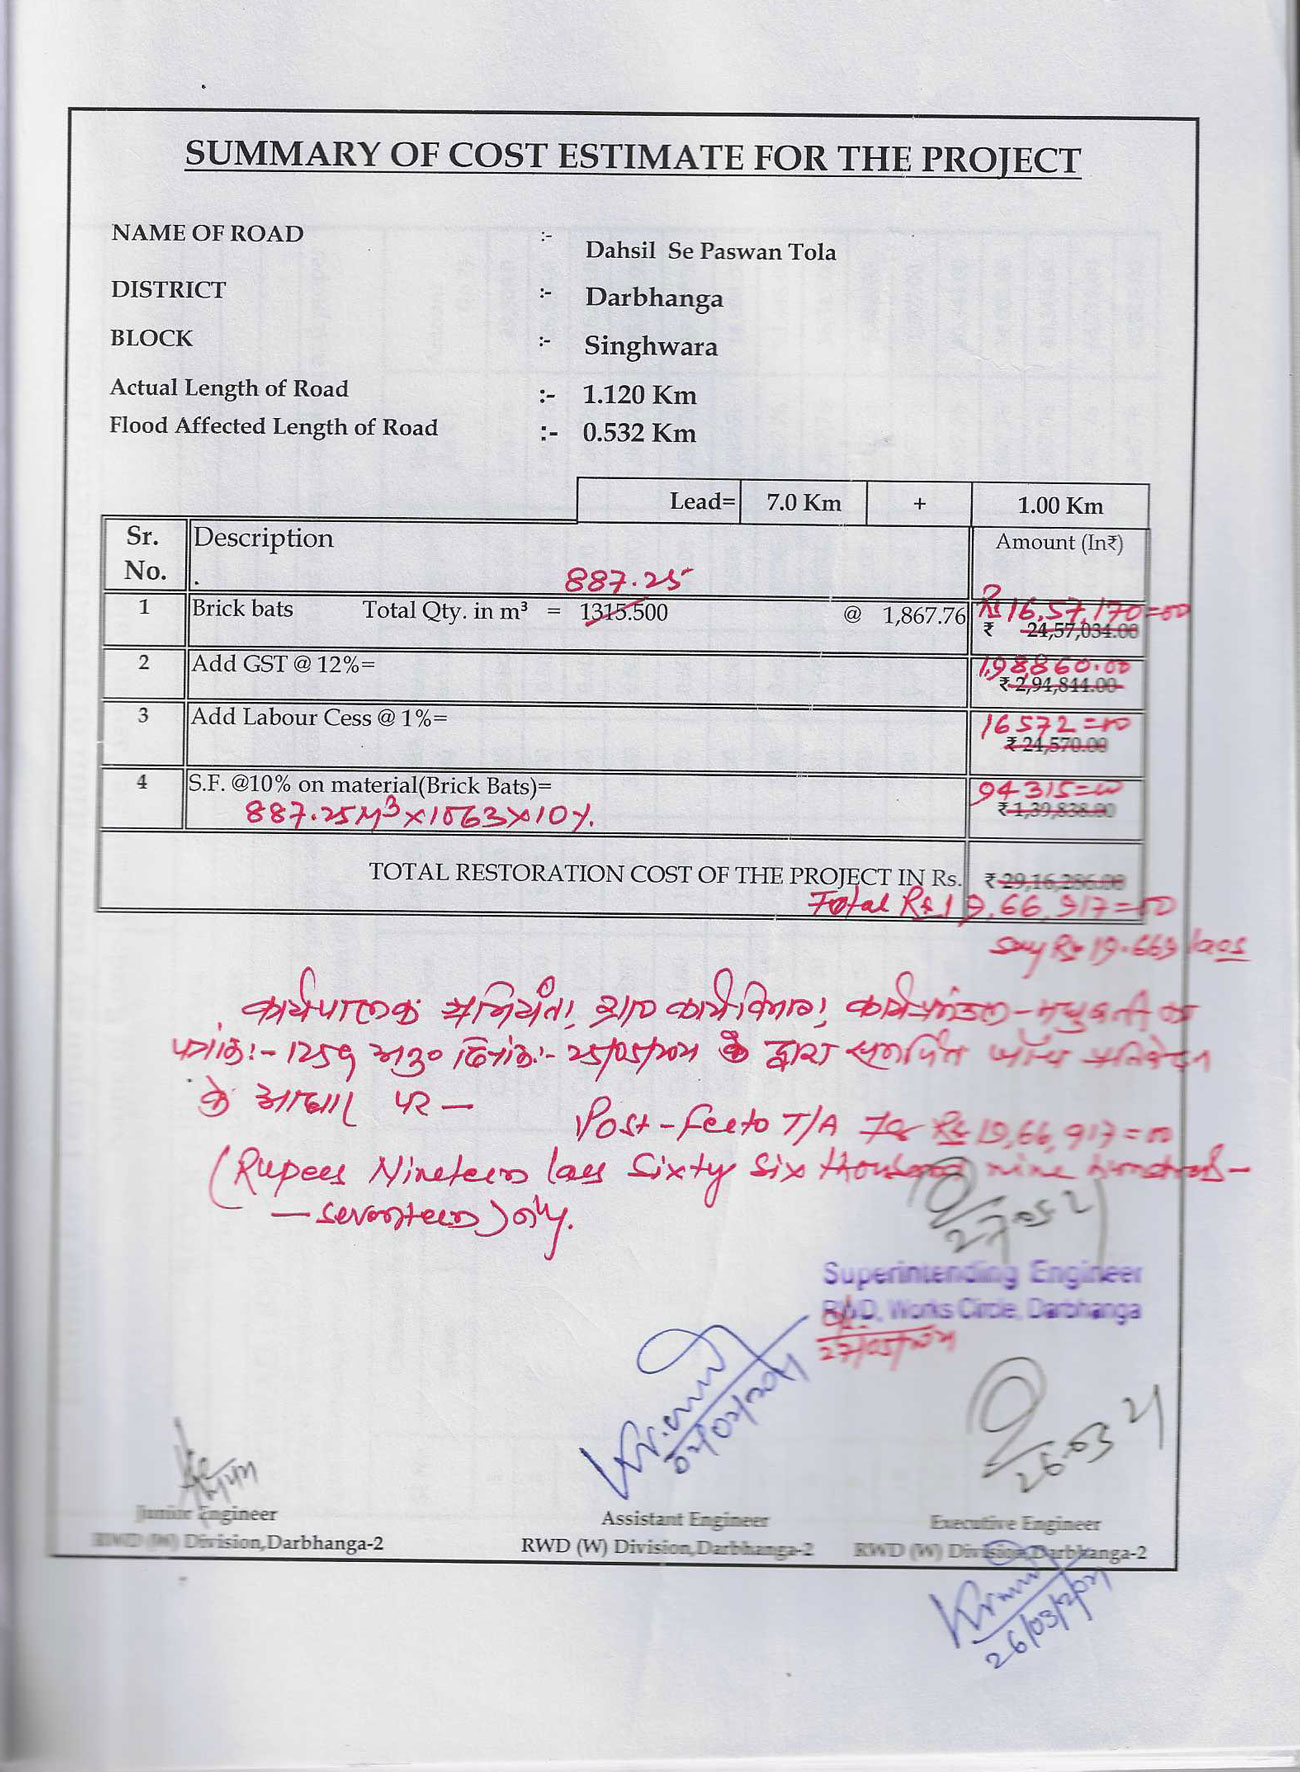 SUMMARY OF COST ESTIMATE FOR THE PROJECT
NAME OF ROAD :- Dahsil Se Paswan Tola
DISTRICT :- Darbhanga
BLOCK :- Singhwara
Actual Length of Road :- 1.120 Km
Flood Affected Length of Road :- 0.532 Km
Lead= 7.0 Km + 1.00 Km
Sr. No. Description . Amount (In₹)
887.25
1 Brick bats Total Qty. in m³ = 1315.500 @ 1,867.76 Rs 16,57,170=00
₹ 24,57,034.00
2 Add GST @ 12%= 1,98,860.00
₹ 2,94,844.00
3 Add Labour Cess @ 1%= 16572=00
₹ 24,570.00
4 S.F. @10% on material(Brick Bats)= 94315=00
887.25M³×1063×10%. ₹ 1,39,838.00
TOTAL RESTORATION COST OF THE PROJECT IN Rs. ₹ 29,16,286.00
Total Rs 19,66,917=00
say Rs 19.669 lacs
कार्यपालक अभियंता, कार्य
पत्रांक:- 1259 अनु० दिनांक:- 25/05/2021 के द्वारा समर्पित जाँच प्रतिवेदन
के आधार पर —
Post-facto T/A for Rs 19,66,917=00
(Rupees Nineteen lacs Sixty Six thousand nine hundred-
— Seventeen) only.
27.05.21
Superintending Engineer
RWD, Works Circle, Darbhanga
27/05/2021
02/02/2021
26.03.21
Junior Engineer
RWD (W) Division,Darbhanga-2
Assistant Engineer
RWD (W) Division,Darbhanga-2
Executive Engineer
RWD (W) Division,Darbhanga-2
26/03/2021